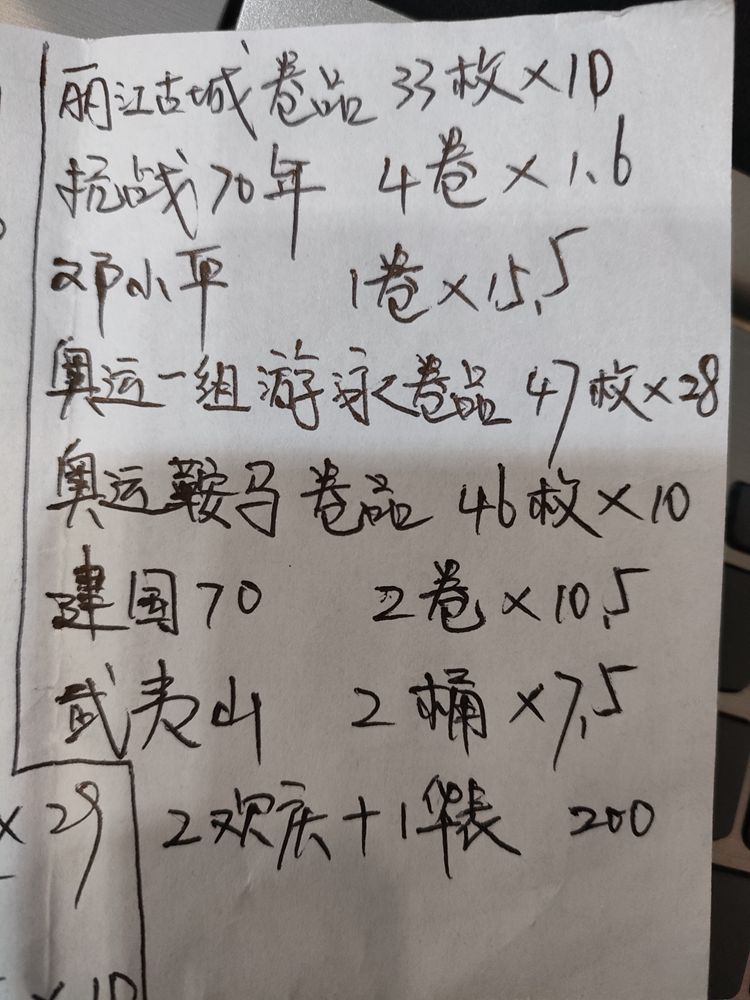 丽江古城卷品 33枚×10
抗战70年 4卷×1.6
邓小平 1卷×15.5
奥运一组游泳卷品 47枚×28
奥运鞍马卷品 46枚×10
建国70 2卷×10.5
武夷山 2桶×7.5
×29 2欢庆+1华表 200
×10